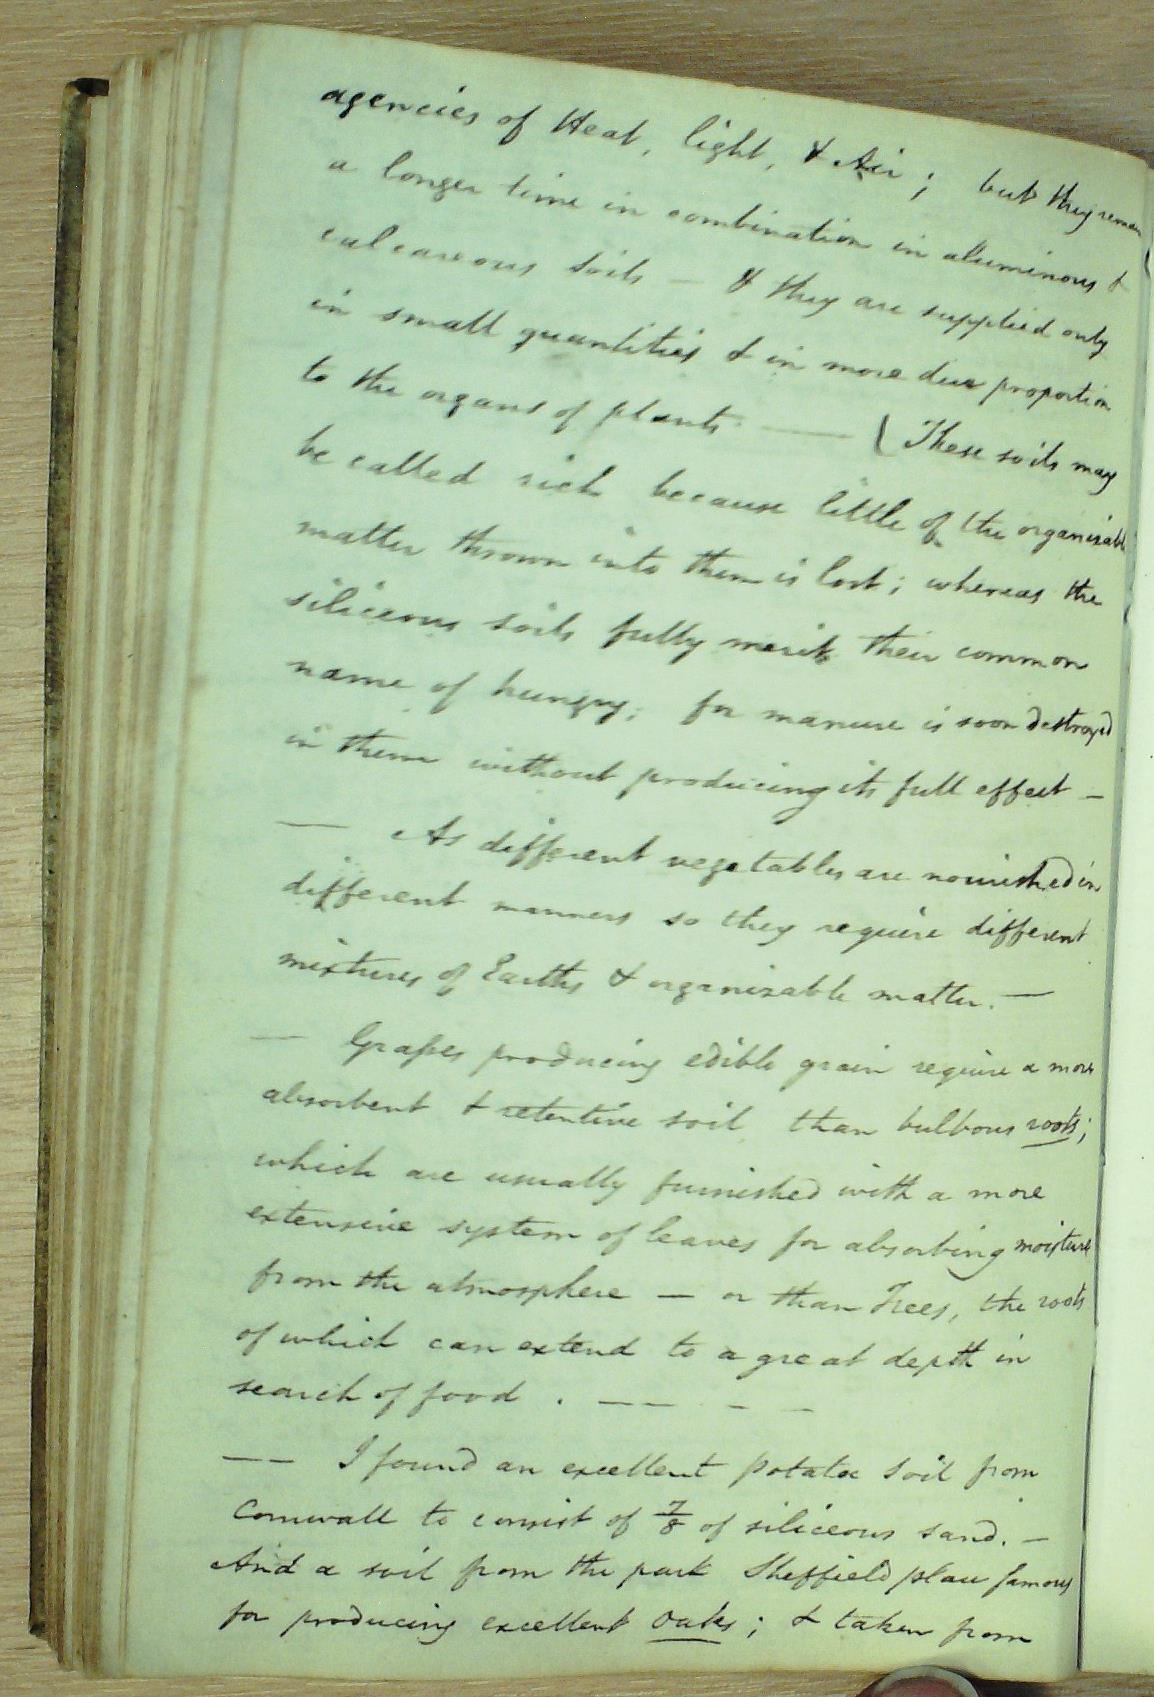 agencies of Heat, light, & Air; but they remain
a longer time in combination in aluminous &
calcareous soils — & they are supplied only
in small quantities & in more due proportion
to the organs of plants —— (These soils may
be called rich because little of the organizable
matter thrown into them is lost; whereas the
siliceous soils fully merit their common
name of hungry; for manure is soon destroyed
in them without producing its full effect —
— As different vegetables are nourished in
different manners so they require different
mixtures of Earths & organizable matter. —
— Grasses producing edible grain require a more
absorbent & retentive soil than bulbous roots;
which are usually furnished with a more
extensive system of leaves for absorbing moisture
from the atmosphere — or than Trees, the roots
of which can extend to a great depth in
search of food . — — - -
—— I found an excellent potatoe soil from
Cornwall to consist of 7/8 of siliceous sand. —
And a soil from the park Sheffield place famous
for producing excellent Oaks; & taken from